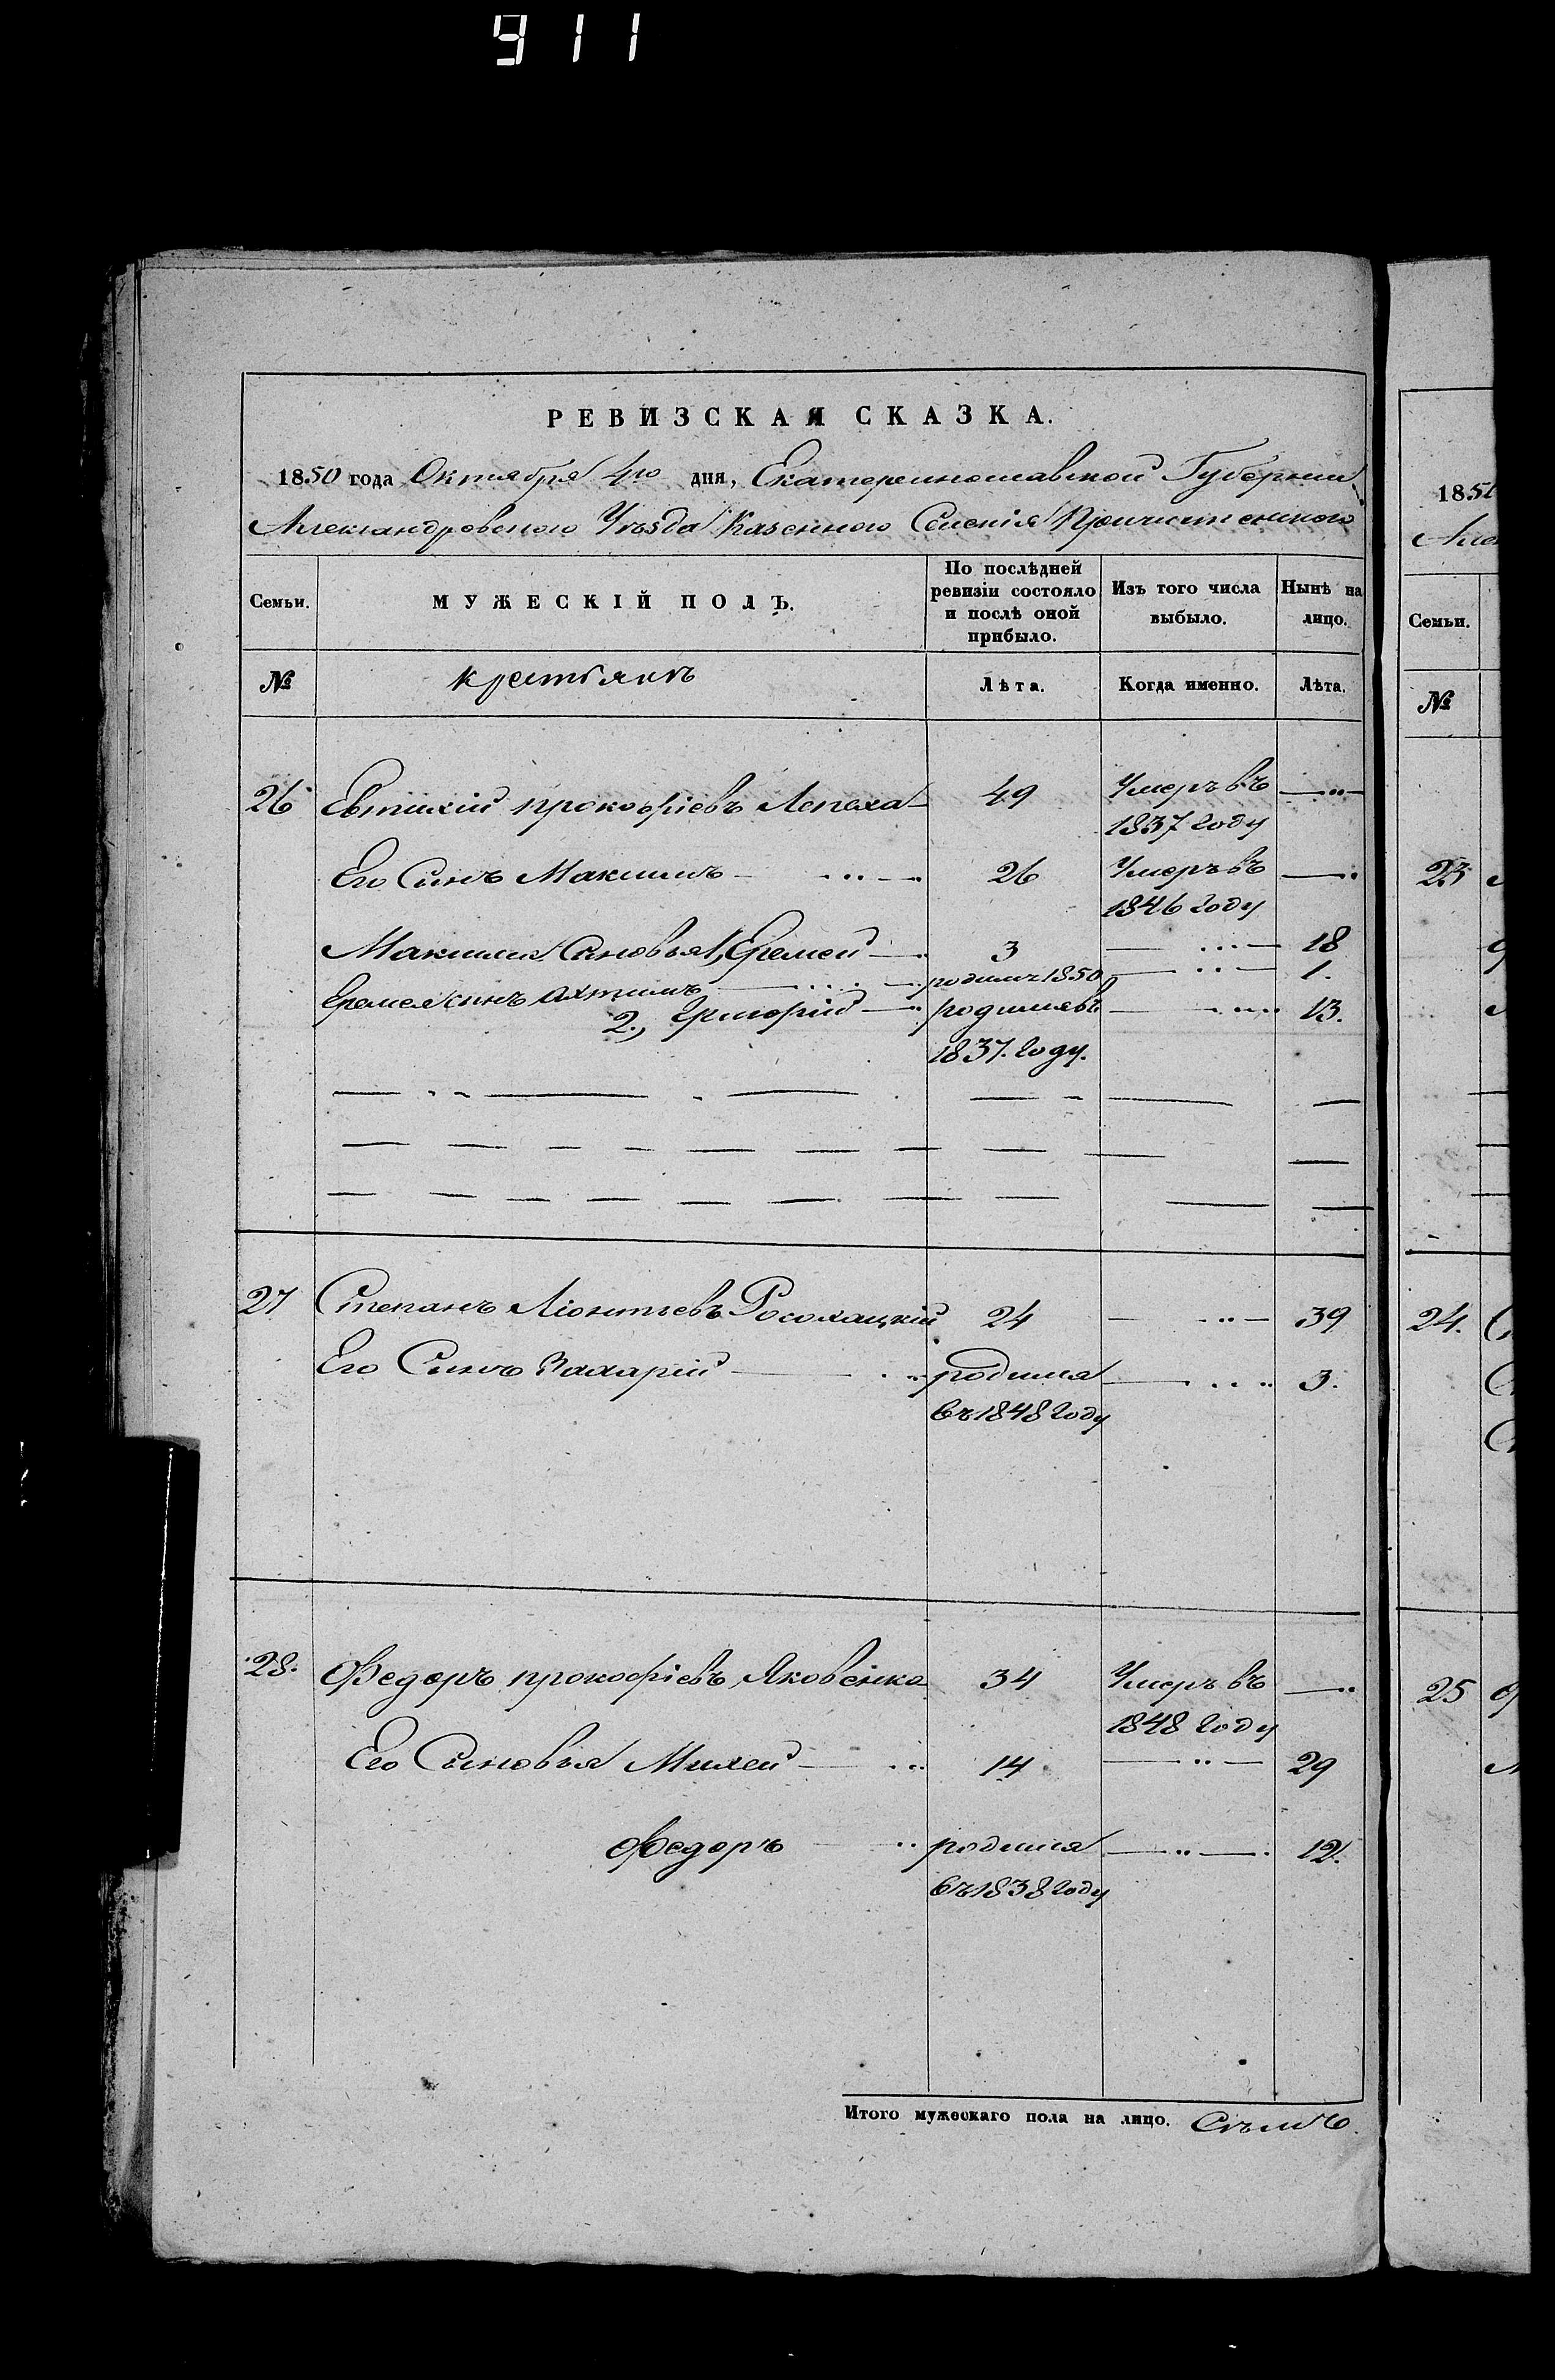 911
РЕВИЗСКАЯ СКАЗКА.
1850 года Октября 4го дня, Екатеринославской Губерніи
Александровского Уѣзда Казенного Селенія Пречистенского
Семьи.
МУЖЕСКІЙ ПОЛЪ.
По послѣдней ревизіи состояло и послѣ оной прибыло.
Изъ того числа выбыло.
Нынѣ на лицо.
№ крестьянъ Лѣта. Когда именно. Лѣта.
26 Евтихій прокофіевъ Лепеха 49 Умеръ въ
1837 году
Его Синъ Максимъ 26 Умеръ въ
1846 году
Максима Синовья 1, Еремей 3 18
Еремея синъ родилъ 1850 1.
2., Григорій родился въ 13.
1837. году.
27 Степанъ Ліонтьевъ Росохацкій 24 39
Его Синъ Захарій родился 3.
въ 1848 году
28. Федоръ прокофіевъ Яковенко 34 Умеръ въ
1848 году
Его Сыновья Михей 14 29
Федоръ родился 12.
въ 1838 году
Итого мужескаго пола на лицо. Съмъ
185
Семьи.
№
23
24.
25